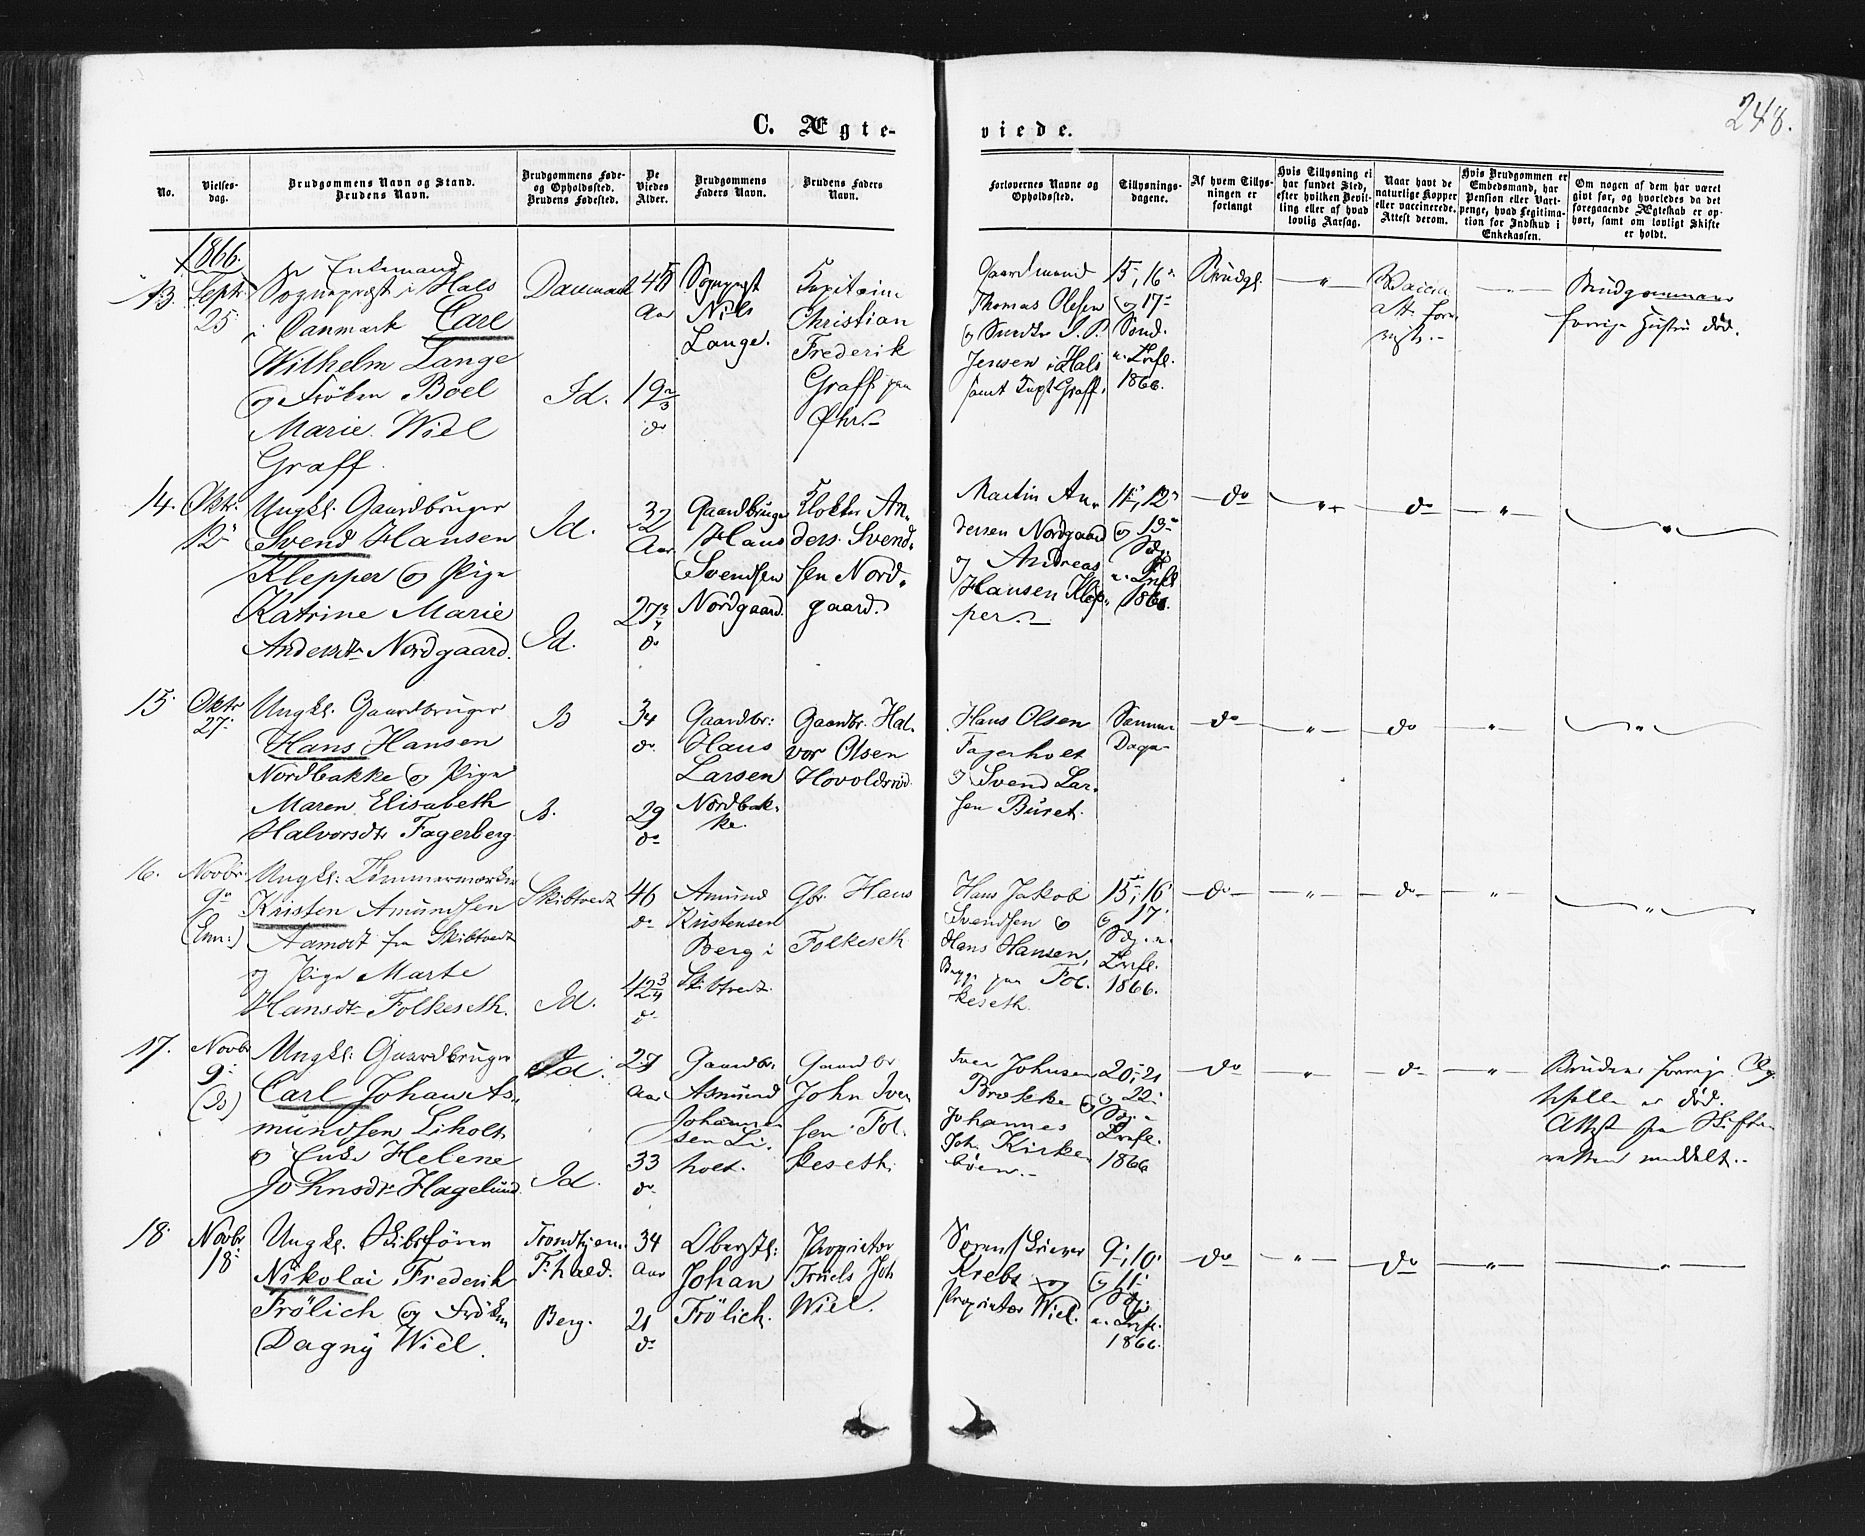 248.
C. Ægte-
viede.
No.
Vielses-
dag.
Brudgommens Navn og Stand.
Brudens Navn.
Brudgommens Føde-
og Opholdssted.
Brudens Fødested.
De
Viedes
Alder.
Brudgommens
Faders Navn.
Brudens Faders
Navn.
Forlovernes Navne og
Opholdssted.
Tillysnings-
dagene.
Af hvem Tillys-
ningen er
forlangt
Hvis Tillysning ei
har fundet Sted,
efter hvilken Bevil-
ling eller af hvad
lovlig Aarsag.
Naar havt de
naturlige Kopper
eller vaccinerede.
Attest derom.
Hvis Brudgommen er
Embedsmand, har
Pension eller Vart-
penge, hvad Legitima-
tion for Indskud i
Enkekassen.
Om nogen af dem har været
givt før, og hvorledes da det
foregaaende Ægteskab er op-
hørt, samt om lovligt Skifte
er holdt.
1866.
13.
Septr
25
Enkemand
Sognepræst i Hals
i Danmark Carl
Wilhelm Lange
og Frøken Boel
Marie Wiel
Graff.
Danmark
Id.
45
Aar
19 2/3
do
Sognepræst
Nils
Lange.
Kapitain
Christian
Frederik
Graff paa
Øhr.
Gaardmand
Thomas Olesen
og
Jensen i Hals
samt Kapt Graff.
15, 16
og 17
Sønd.
e. Trefl.
1866.
Brudg.
"
Vaccin
att. fore
vist.
Brudgommens
forrige Hustru død.
14.
Oktr.
12
Ungkl. Gaardbruger
Svend Hansen
Klepper og Pige
Katrine Marie
Andersdtr Nordgaard.
Id.
Id.
32
Aar
27 3/4
do
Gaardbruger
Hans
Svendsen
Nordgaard.
Klokker An-
ders Svend-
sen Nord-
gaard.
Martin An-
dersen Nordgaard
og Andreas
Hansen Klep-
per.
11, 12
og 13
Sdg.
e. Trefl
1866.
do
"
do
"
"
15.
Oktr
27.
Ungkl. Gaardbruger
Hans Hansen
Nordbakke og Pige
Maren Elisabeth
Halvorsdtr Fagerberg.
B
B.
34
do
29
do
Gaardbr:
Hans
Larsen
Nordbak-
ke.
Gaardbr. Hal-
vor Olsen
Hovoldsrød
Hans Olsen
Fagerholt
og Svend Lar-
sen Buret.
Samme
Dage
do
"
do
"
"
16.
Novbr.
9
(Enn:)
Ungkl: Tømmermærker
Kristen Amundsen
Aamodt fra Skibtvedt
og Pige Marte
Hansdtr Folkeseth.
Skibtvedt
Id.
46
do
42 3/4
do
Amund
Kristensen
Berg i
Skibtvedt.
Gbr. Hans
Folkeseth
Hans Jakob
Svendsen og
Hans Hansen,
Begge paa Fol-
keseth.
15, 16
og 17.
Sdg. e.
Trefl.
1866.
do
"
do
"
"
17.
Novbr
9
(B)
Ungkl: Gaardbruger
Carl Johan As-
mundsen Liholt
og Enke Helene
Johnsdtr Hagelund.
Id.
Id.
27
Aar
33
do
Gaardbr.
Asmund
Johanne-
sen Li-
holt.
Gaardbr
John Iver
sen Fol-
keseth.
Iver Johnsen
Brekke og
Johannes
Joh. Kirke-
böen.
20, 21
og 22
Sdg e
Trefl.
1866
do
"
do
"
Brudens forrige Æg-
tefælle er død.
Attest fra Skifte-
retten meddelt.
18.
Novbr
18
Ungkl. Skibsfører
Nikolai Frederik
Frölich og Frøken
Dagny Wiel.
Trondhjem
F.hald.
Berg.
34
Aar
21
do
Oberstl:
Johan
Frölich.
Proprietær
Truels Joh
Wiel.
Sorenskriver
Krebs og
Proprietær Wiel.
9, 10
og 11
Sdg.
e. Trefl.
1866.
do
"
do
"
"